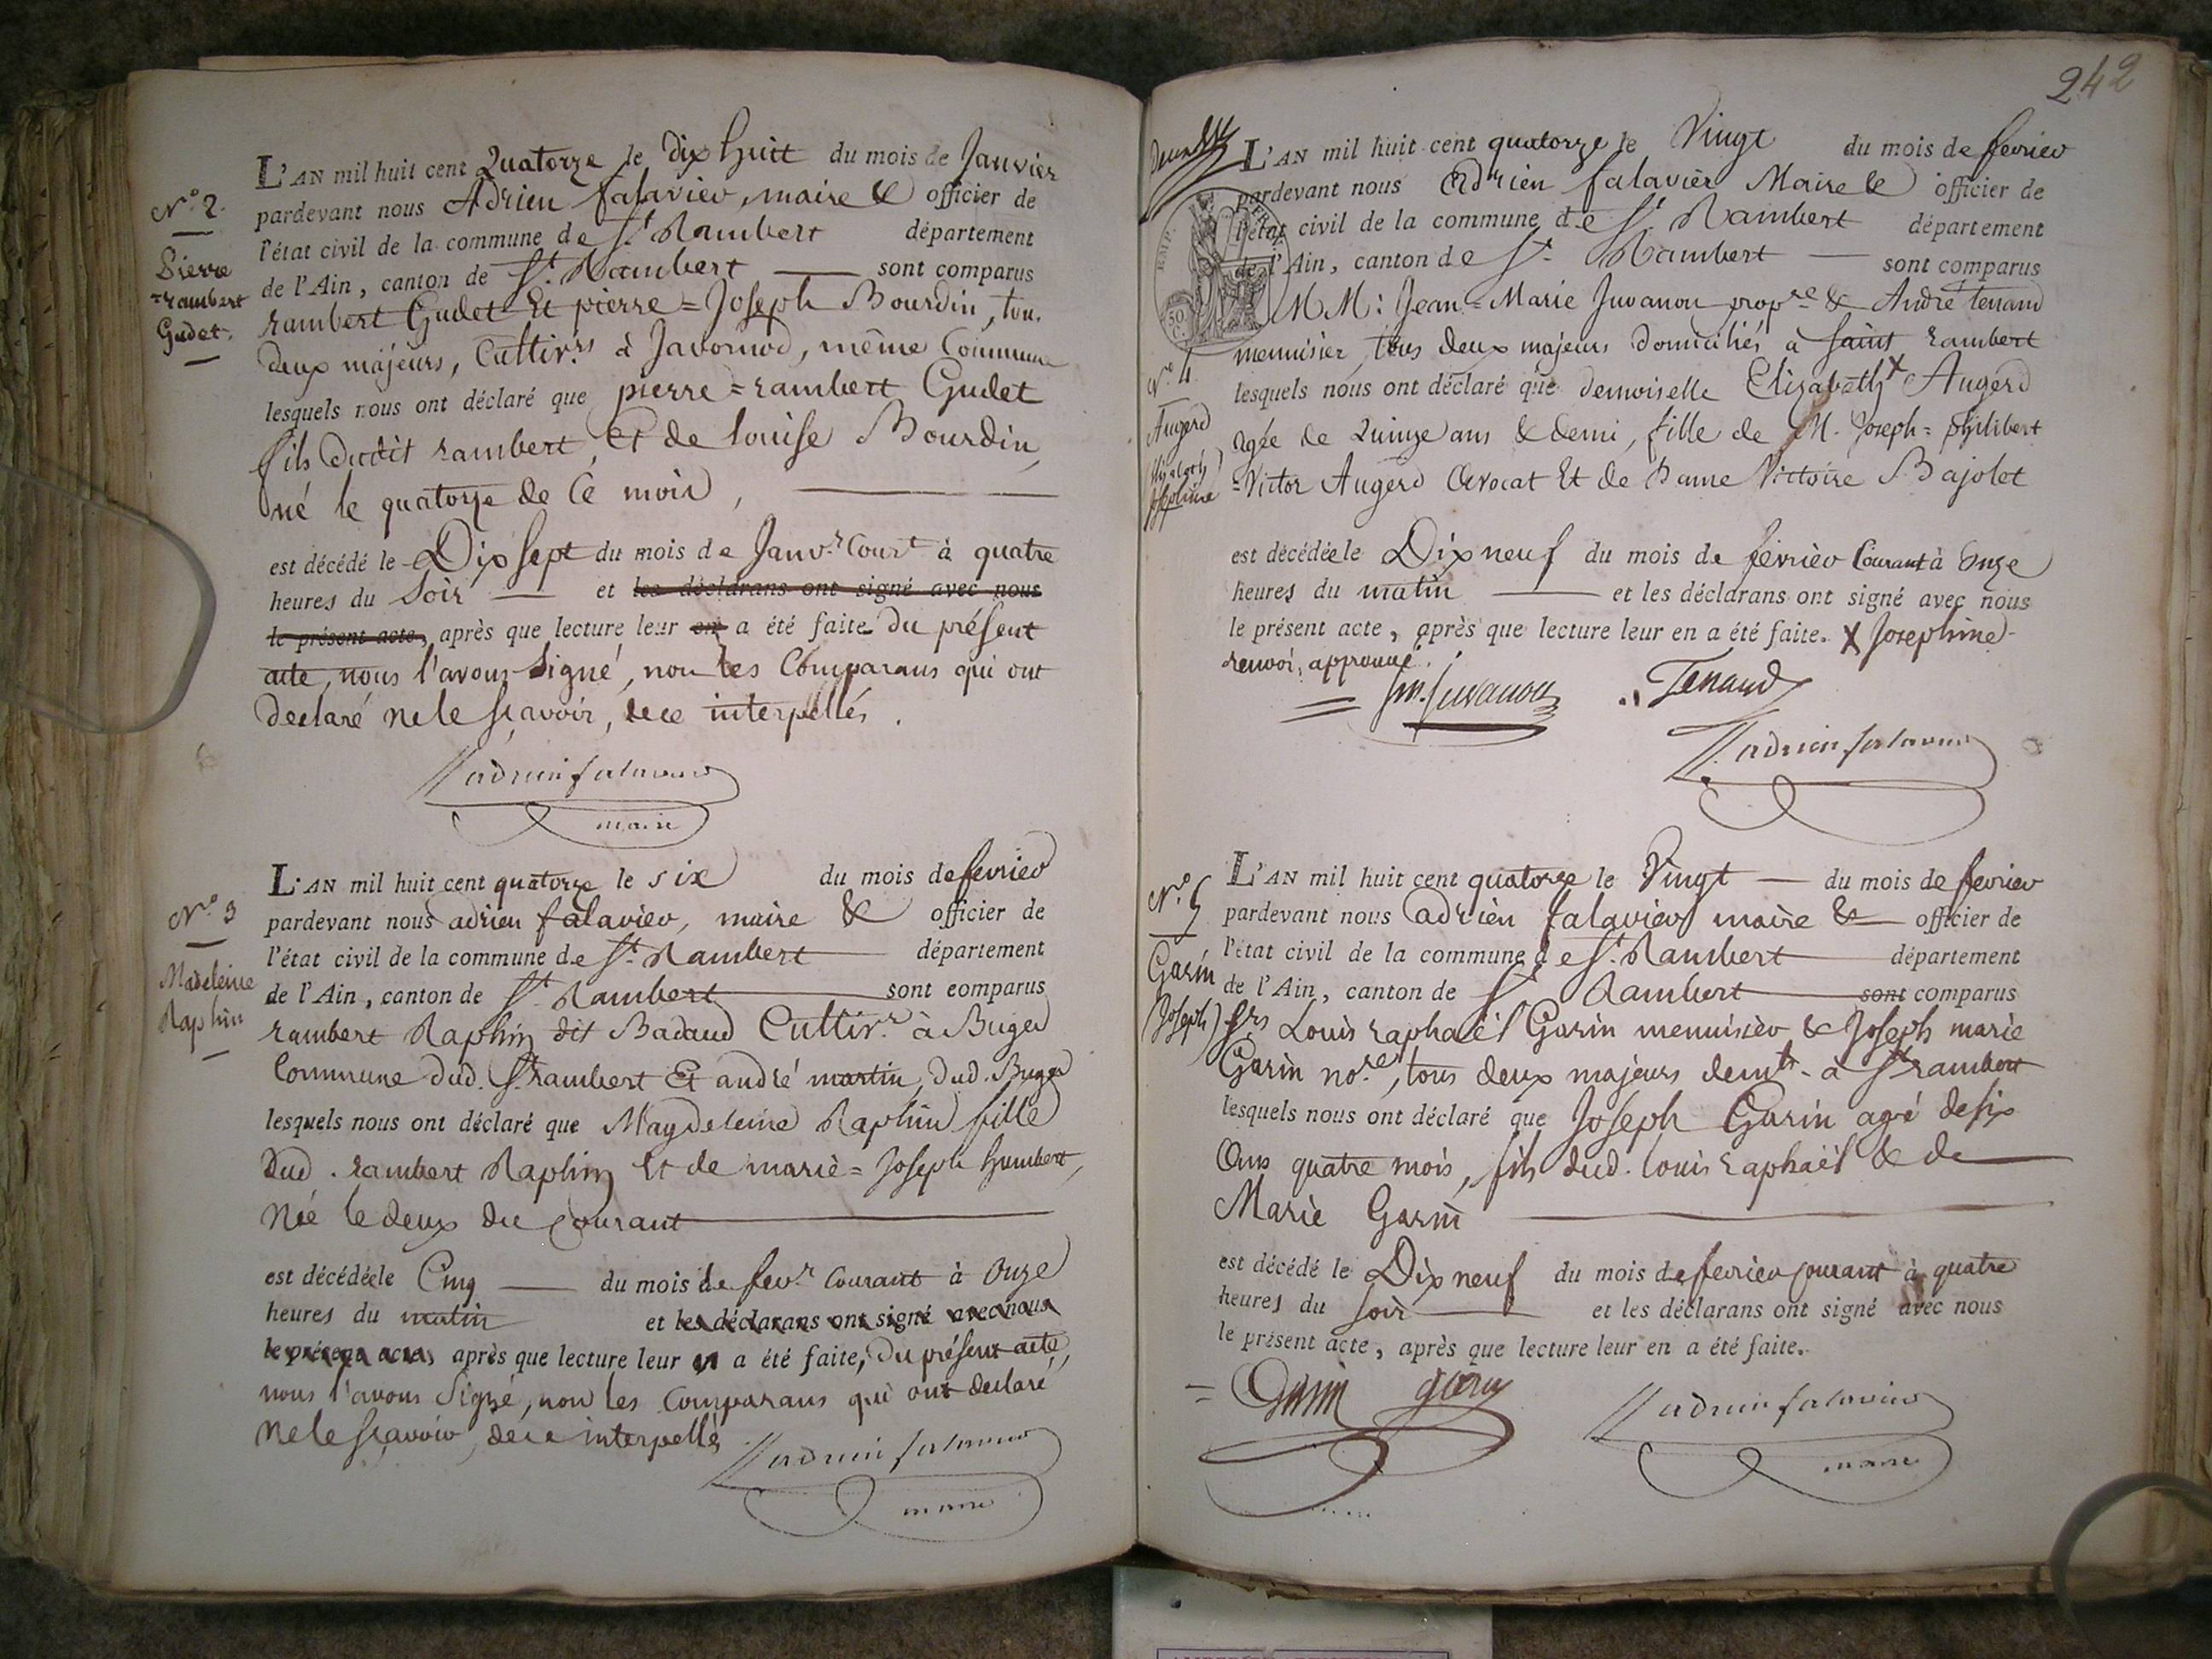 N.o 2.
Pierre
=rambert
Gudet.
L'AN mil huit cent Quatorze le dix huit du mois de Janvier
pardevant nous Adrien falavier, maire & officier de
l'état civil de la commune de St. Rambert département
de l'Ain, canton de St. Rambert sont comparus
rambert Gudet Et pierre=Joseph Bourdin, tou.
deux majeurs, Cultivrs à Javornod, même Commune
lesquels nous ont déclaré que pierre=rambert Gudet
fils dudit rambert, Et de louise Bourdin,
né le quatorze de Ce mois,
est décédé le Dix Sept du mois de Janv.r Court à quatre
heures du Soir et les déclarans ont signé avec nous
le présent acte, après que lecture leur en a été faite du présent
acte, nous l'avons Signé, non les Comparans qui ont
declaré ne le sçavoir, de ce interpellés.
adrien falavier
maire
N.o 3
Madeleine
Raphin
L'AN mil huit cent quatorze le six du mois de fevrier
pardevant nous adrien falavier, maire & officier de
l'état civil de la commune de St. Rambert département
de l'Ain, canton de St. Rambert sont comparus
rambert Raphin dit Badaud Cultivr. à Buges
Commune dud. St. rambert Et andré martin, dud. Buges
lesquels nous ont déclaré que Magdeleine Raphin fille
dud. rambert Raphin Et de marie=Joseph humbert,
Née le deux du Courant
est décédée le Cinq du mois de fevr. Courant à Onze
heures du matin et les déclarans ont signé avec nous
le présent acte, après que lecture leur en a été faite, du présent acte,
nous l'avons Signé, non les Comparans qui ont declaré
ne le sçavoir, de ce interpellés
adrien falavier
maire
242
L'AN mil huit cent quatorze le Vingt du mois de fevrier
pardevant nous Adrien falavier Maire & officier de
l'état civil de la commune de St. Rambert département
de l'Ain, canton de St. Rambert sont comparus
MM: Jean=Marie Juvanon propre & André tenand
menuisier, tous deux majeurs domiciliés à Saint rambert
N.o 4
Augerd
(Elizabeth
Josephine
lesquels nous ont déclaré que demoiselle Elizabeth X Augerd
agée de Quinze ans & demi, fille de M. Joseph=philibert
=Victor Augerd Avocat Et de Dame Victoire Bajolet
est décédée le Dix neuf du mois de février Courant à Onze
heures du matin et les déclarans ont signé avec nous
le présent acte, après que lecture leur en a été faite. X Josephine
renvoi, approuvé.
Jm. Juvanon Tenand
adrien falavier
N.o 5
Garin
(Joseph)
L'AN mil huit cent quatorze le Vingt du mois de fevrier
pardevant nous adrien falavier maire & officier de
l'état civil de la commune de St. Rambert département
de l'Ain, canton de St Rambert sont comparus
Srs Louis raphaël Garin menuisier & Joseph marie
Garin no.re, tous deux majeurs demts. à St rambert
lesquels nous ont déclaré que Joseph Garin agé de six
Ans quatre mois, fils dud. louis raphaël & de
Marie Garin
est décédé le Dix neuf du mois de fevrier Courant à quatre
heures du soir et les déclarans ont signé avec nous
le présent acte, après que lecture leur en a été faite.
Garin garin
adrien falavier
maire